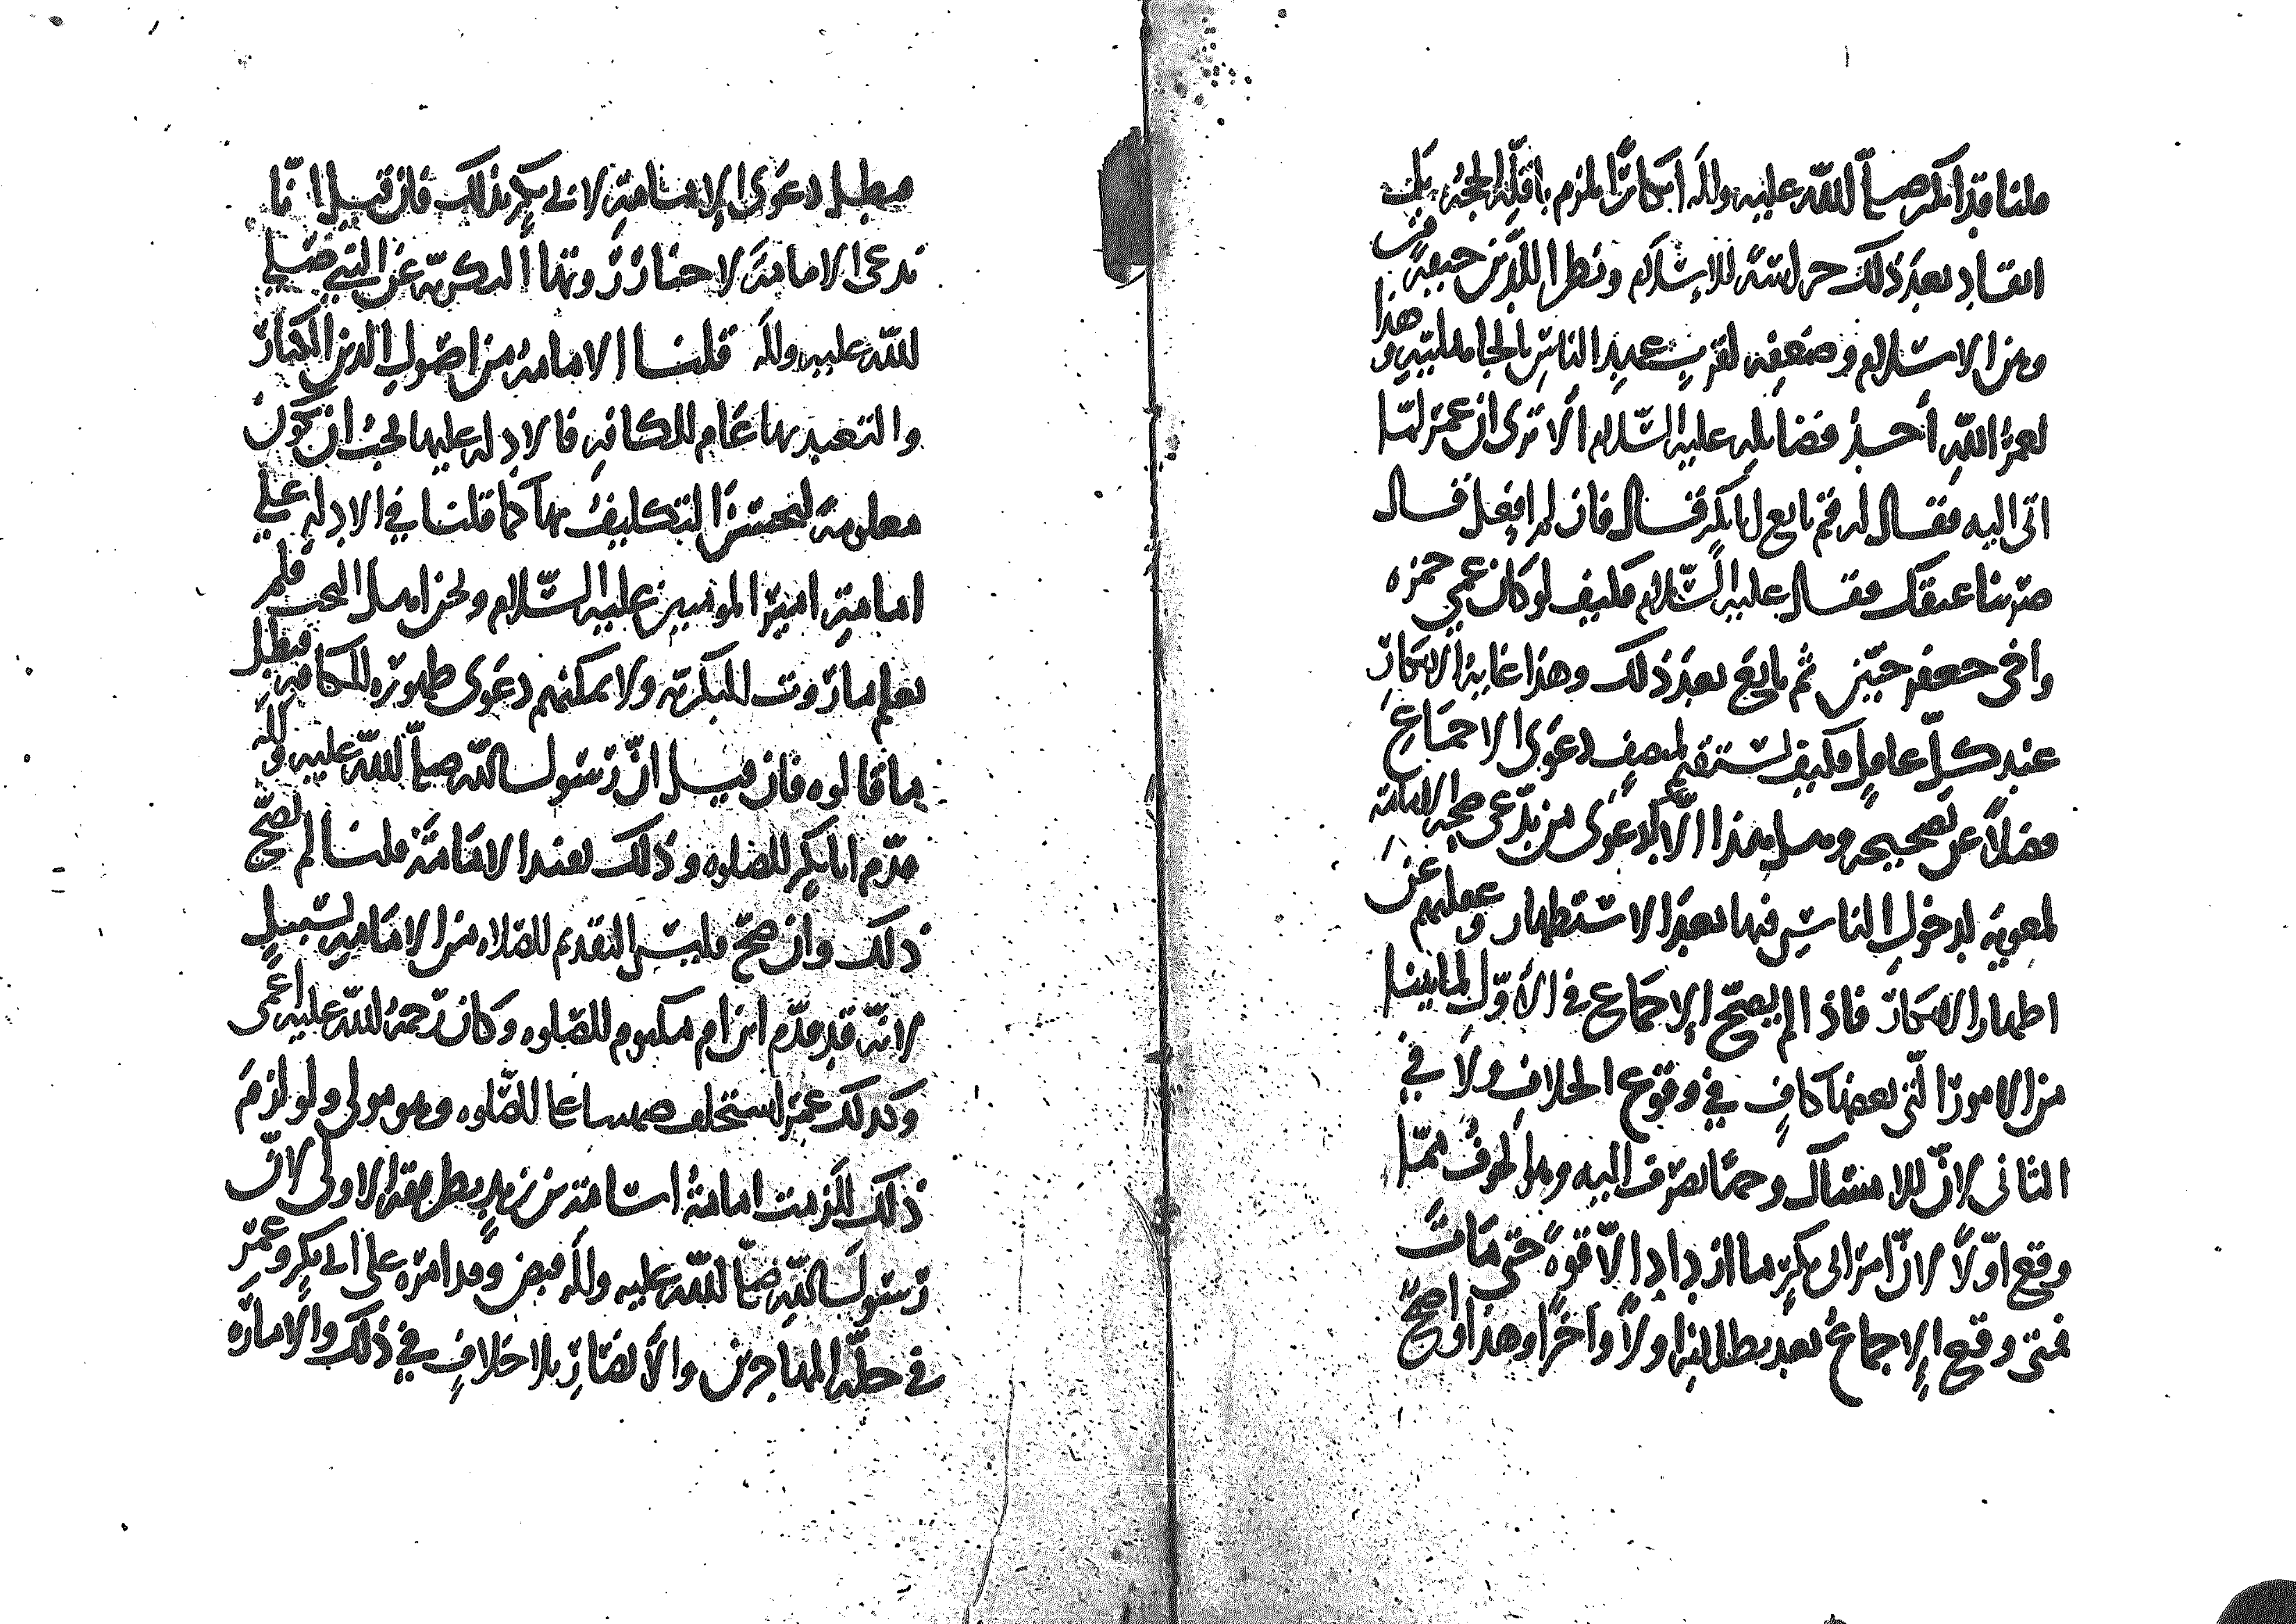 قلنا قد انكر صلى الله عليه وآله انكارًا يلزم باقله الحجة بل
انقاد بعد ذلك حراسة للاسلام ونظرا للدين خيفة من
وهن الاسلام وضعفه لقرب عهد الناس بالجاهلية وهذا
لعمر الله أحد فضائله عليه السلام ألا ترى ان عمر لما
اتى اليه فقال له قم بايع ابا بكر قال فان لم افعل قال
ضربنا عنقك فقال عليه السلام فكيف لو كان عمي حمزه
واخي جعفر حيين ثم بايع بعد ذلك وهذا غاية الانكار
عند كل عاقل فكيف تستقيم لمنصف دعوى الاجماع
فضلاً عن تصحيحه وهل هذا الا كدعوى من يدعي صحة الامامة
لمعوية لدخول الناس فيها بعد الاستظهار وغفلتهم عن
اظهار الانكار فاذا لم يصح الاجماع في الأول لما بينا
من الامور التي بعضها كافٍ في وقوع الخلاف ولا في
الثاني لان للامساك وجهًا يصرف اليه وهو الخوف مما
وقع اولاً لان امر ابي بكر ما ازداد الا قوة حتى مات
فمتى وقع الاجماع بعد بطلانه اولاً وآخرًا وهذا واضح
فبطل دعوى الامامة لابي بكر بذلك فان قيل انا
ندعي الامامة لاخبار روتها البكرية عن النبي صلى
الله عليه وآله قلنا الامامة من اصول الدين الكبار
والتعبد بها عام للكافة فالادلة عليها يجب ان تكون
معلومة ليحسن التكليف بها كما قلنا في الادلة على
امامة امير المومنين عليه السلام ونحن اهل البحث فلم
نعلم ما روت البكرية ولا يمكنهم دعوى ظهوره للكافة فبطل
ما قالوه فان قيل ان رسول الله صلى الله عليه وآله
قدم ابا بكر للصلوه وذلك يفيد الامامة قلنا لم يصح
ذلك وان صح فليس التقدم للصلاه من الامامة بسبيل
لانه قد قدم ابن ام مكتوم للصلوه وكان رحمة الله عليه اعمى
وكذلك عمر استخلف صهيبا للصلوه وهو مولى ولو لزم
ذلك للزمت امامة اسامة بن زيد بطريقة الاولى لان
رسول الله صلى الله عليه وآله قبض وقد امره على ابي بكر وعمر
في جلة المهاجرين والأنصار بلا خلاف في ذلك والاماره